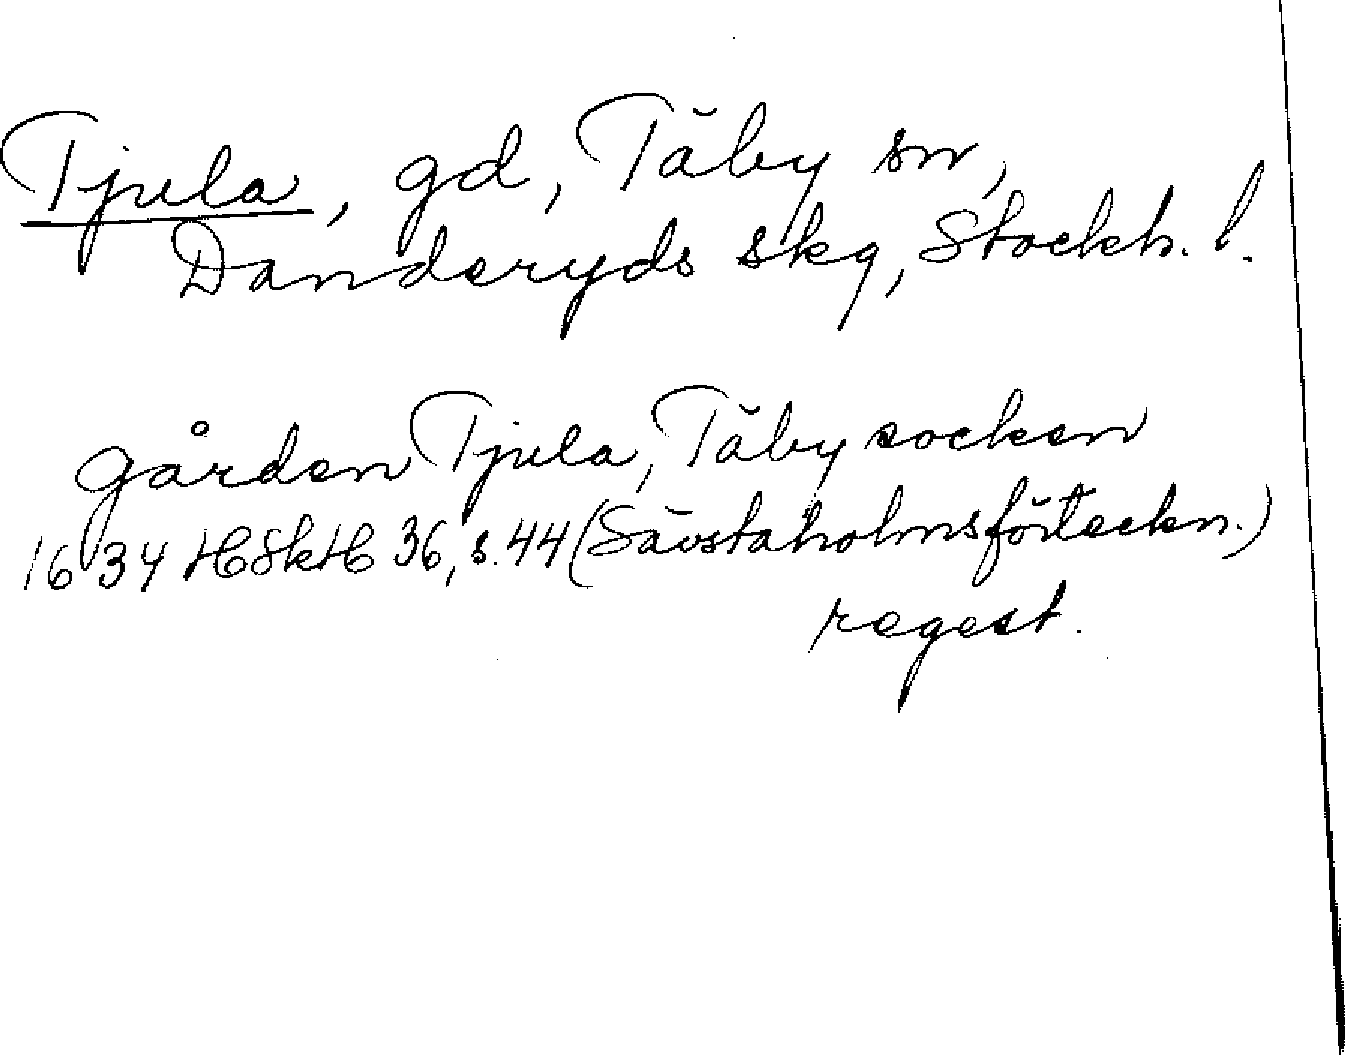 Tjula, gd, Täby sn,
Danderyds skg, Stockh. l.
gården Tjula, Täby socken
1634 HSkH 36, s. 44 (Sävstaholmsförteckn.)
regest.